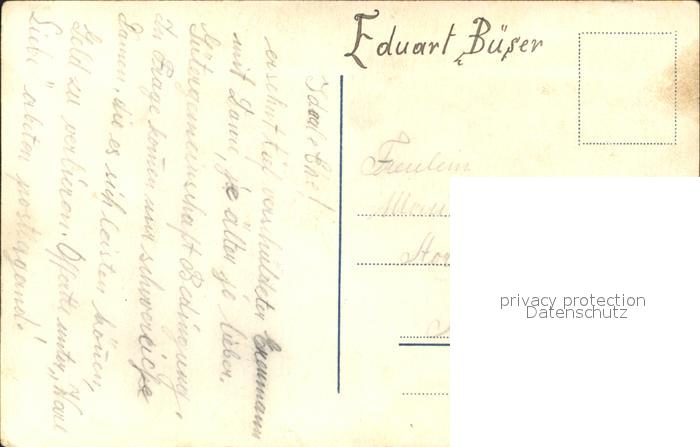 Eduart Büser
Ideale Ehe!
ersehnt für verschuldeten Ehemann
mit Dame, je älter je lieber.
Gütergemeinschaft Bedingung,
In Frage kommen nur schwerreiche
Damen, die es sich leisten können,
Geld zu verlieren. Offerten unter „Wahre
Liebe" abten postlagernd!
Freulein
privacy protection
Datenschutz